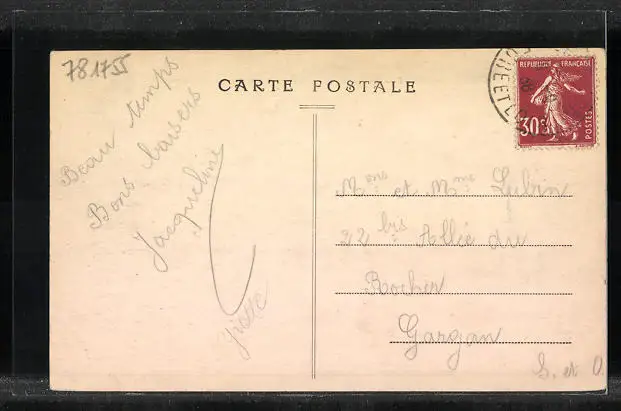 781755
CARTE POSTALE
REPUBLIQUE FRANÇAISE
30c
POSTES
Beau temps
Bons baisers
Jacqueline
Mons et Mme Lubin
22 bis Allée du
Rocher
Gargan
S. et O.